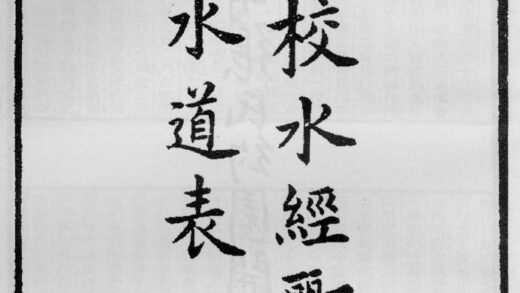 校水經
水道表